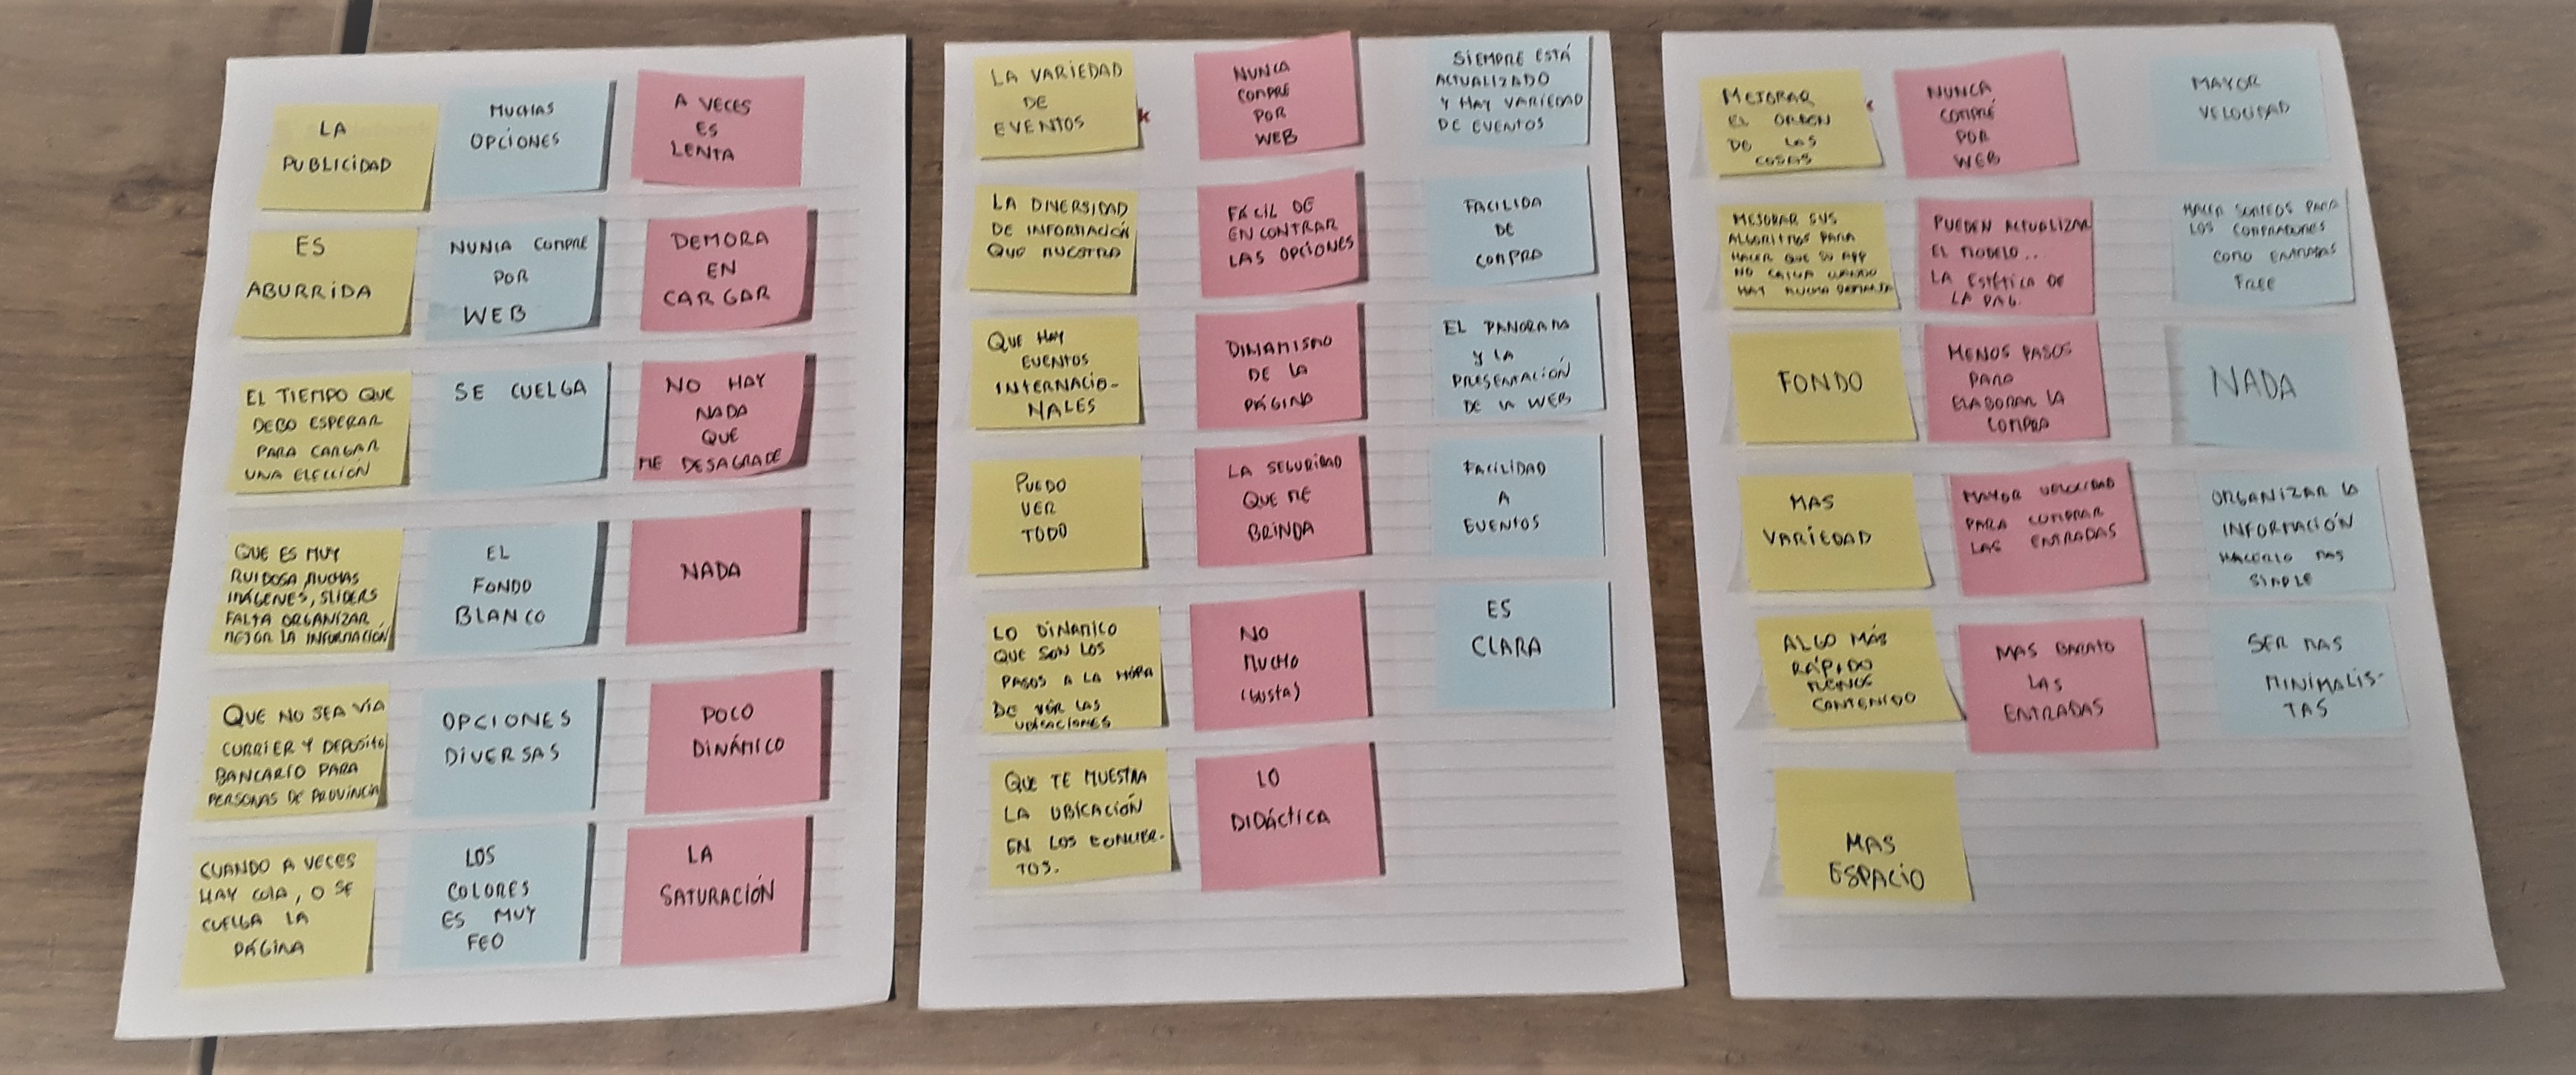 LA
PUBLICIDAD
MUCHAS
OPCIONES
A VECES
ES
LENTA
ES
ABURRIDA
NUNCA COMPRE
POR
WEB
DEMORA
EN
CARGAR
EL TIEMPO QUE
DEBO ESPERAR
PARA CARGAR
UNA ELECCIÓN
SE CUELGA
NO HAY
NADA
QUE
ME DESAGRADE
QUE ES MUY
RUIDOSA, MUCHAS
IMÁGENES, SLIDERS
FALTA ORGANIZAR
MEJOR LA INFORMACIÓN
EL
FONDO
BLANCO
NADA
QUE NO SEA VÍA
CURRIER Y DEPOSITO
BANCARIO PARA
PERSONAS DE PROVINCIA
OPCIONES
DIVERSAS
POCO
DINÁMICO
CUANDO A VECES
HAY COLA, O SE
CUELGA LA
PÁGINA
LOS
COLORES
ES MUY
FEO
LA
SATURACIÓN
LA VARIEDAD
DE
EVENTOS
k
NUNCA
COMPRÉ
POR
WEB
SIEMPRE ESTÁ
ACTUALIZADO
Y HAY VARIEDAD
DE EVENTOS
LA DIVERSIDAD
DE INFORMACIÓN
QUE MUESTRA
FÁCIL DE
ENCONTRAR
LAS OPCIONES
FACILIDA
DE
COMPRA
QUE HAY
EVENTOS
INTERNACIO-
NALES
DINAMISMO
DE LA
PÁGINA
EL PANORAMA
Y LA
PRESENTACIÓN
DE LA WEB
PUEDO
VER
TODO
LA SEGURIDAD
QUE ME
BRINDA
FACILIDAD
A
EVENTOS
LO DINAMICO
QUE SON LOS
PASOS A LA HORA
DE VER LAS
UBICACIONES
NO
MUCHO
(GUSTA)
ES
CLARA
QUE TE MUESTRA
LA UBICACIÓN
EN LOS CONCIER-
TOS.
LO
DIDÁCTICA
MEJORAR
EL ORDEN
DE LAS
COSAS
NUNCA
COMPRÉ
POR
WEB
MAYOR
VELOCIDAD
MEJORAR SUS
ALGORITMOS PARA
HACER QUE SU APP
NO CAIGA CUANDO
HAY MUCHA DEMANDA
PUEDEN ACTUALIZAR
EL MODELO..
LA ESTÉTICA DE
LA PAG.
HACER SORTEOS PARA
LOS COMPRADORES
COMO ENTRADAS
FREE
FONDO
MENOS PASOS
PARA
ELABORAR LA
COMPRA
NADA
MAS
VARIEDAD
MAYOR VELOCIDAD
PARA COMPRAR
LAS ENTRADAS
ORGANIZAR LA
INFORMACIÓN
HACERLO MAS
SIMPLE
ALGO MÁS
RÁPIDO
MENOS
CONTENIDO
MAS BARATO
LAS
ENTRADAS
SER MAS
MINIMALIS-
TAS
MAS
ESPACIO